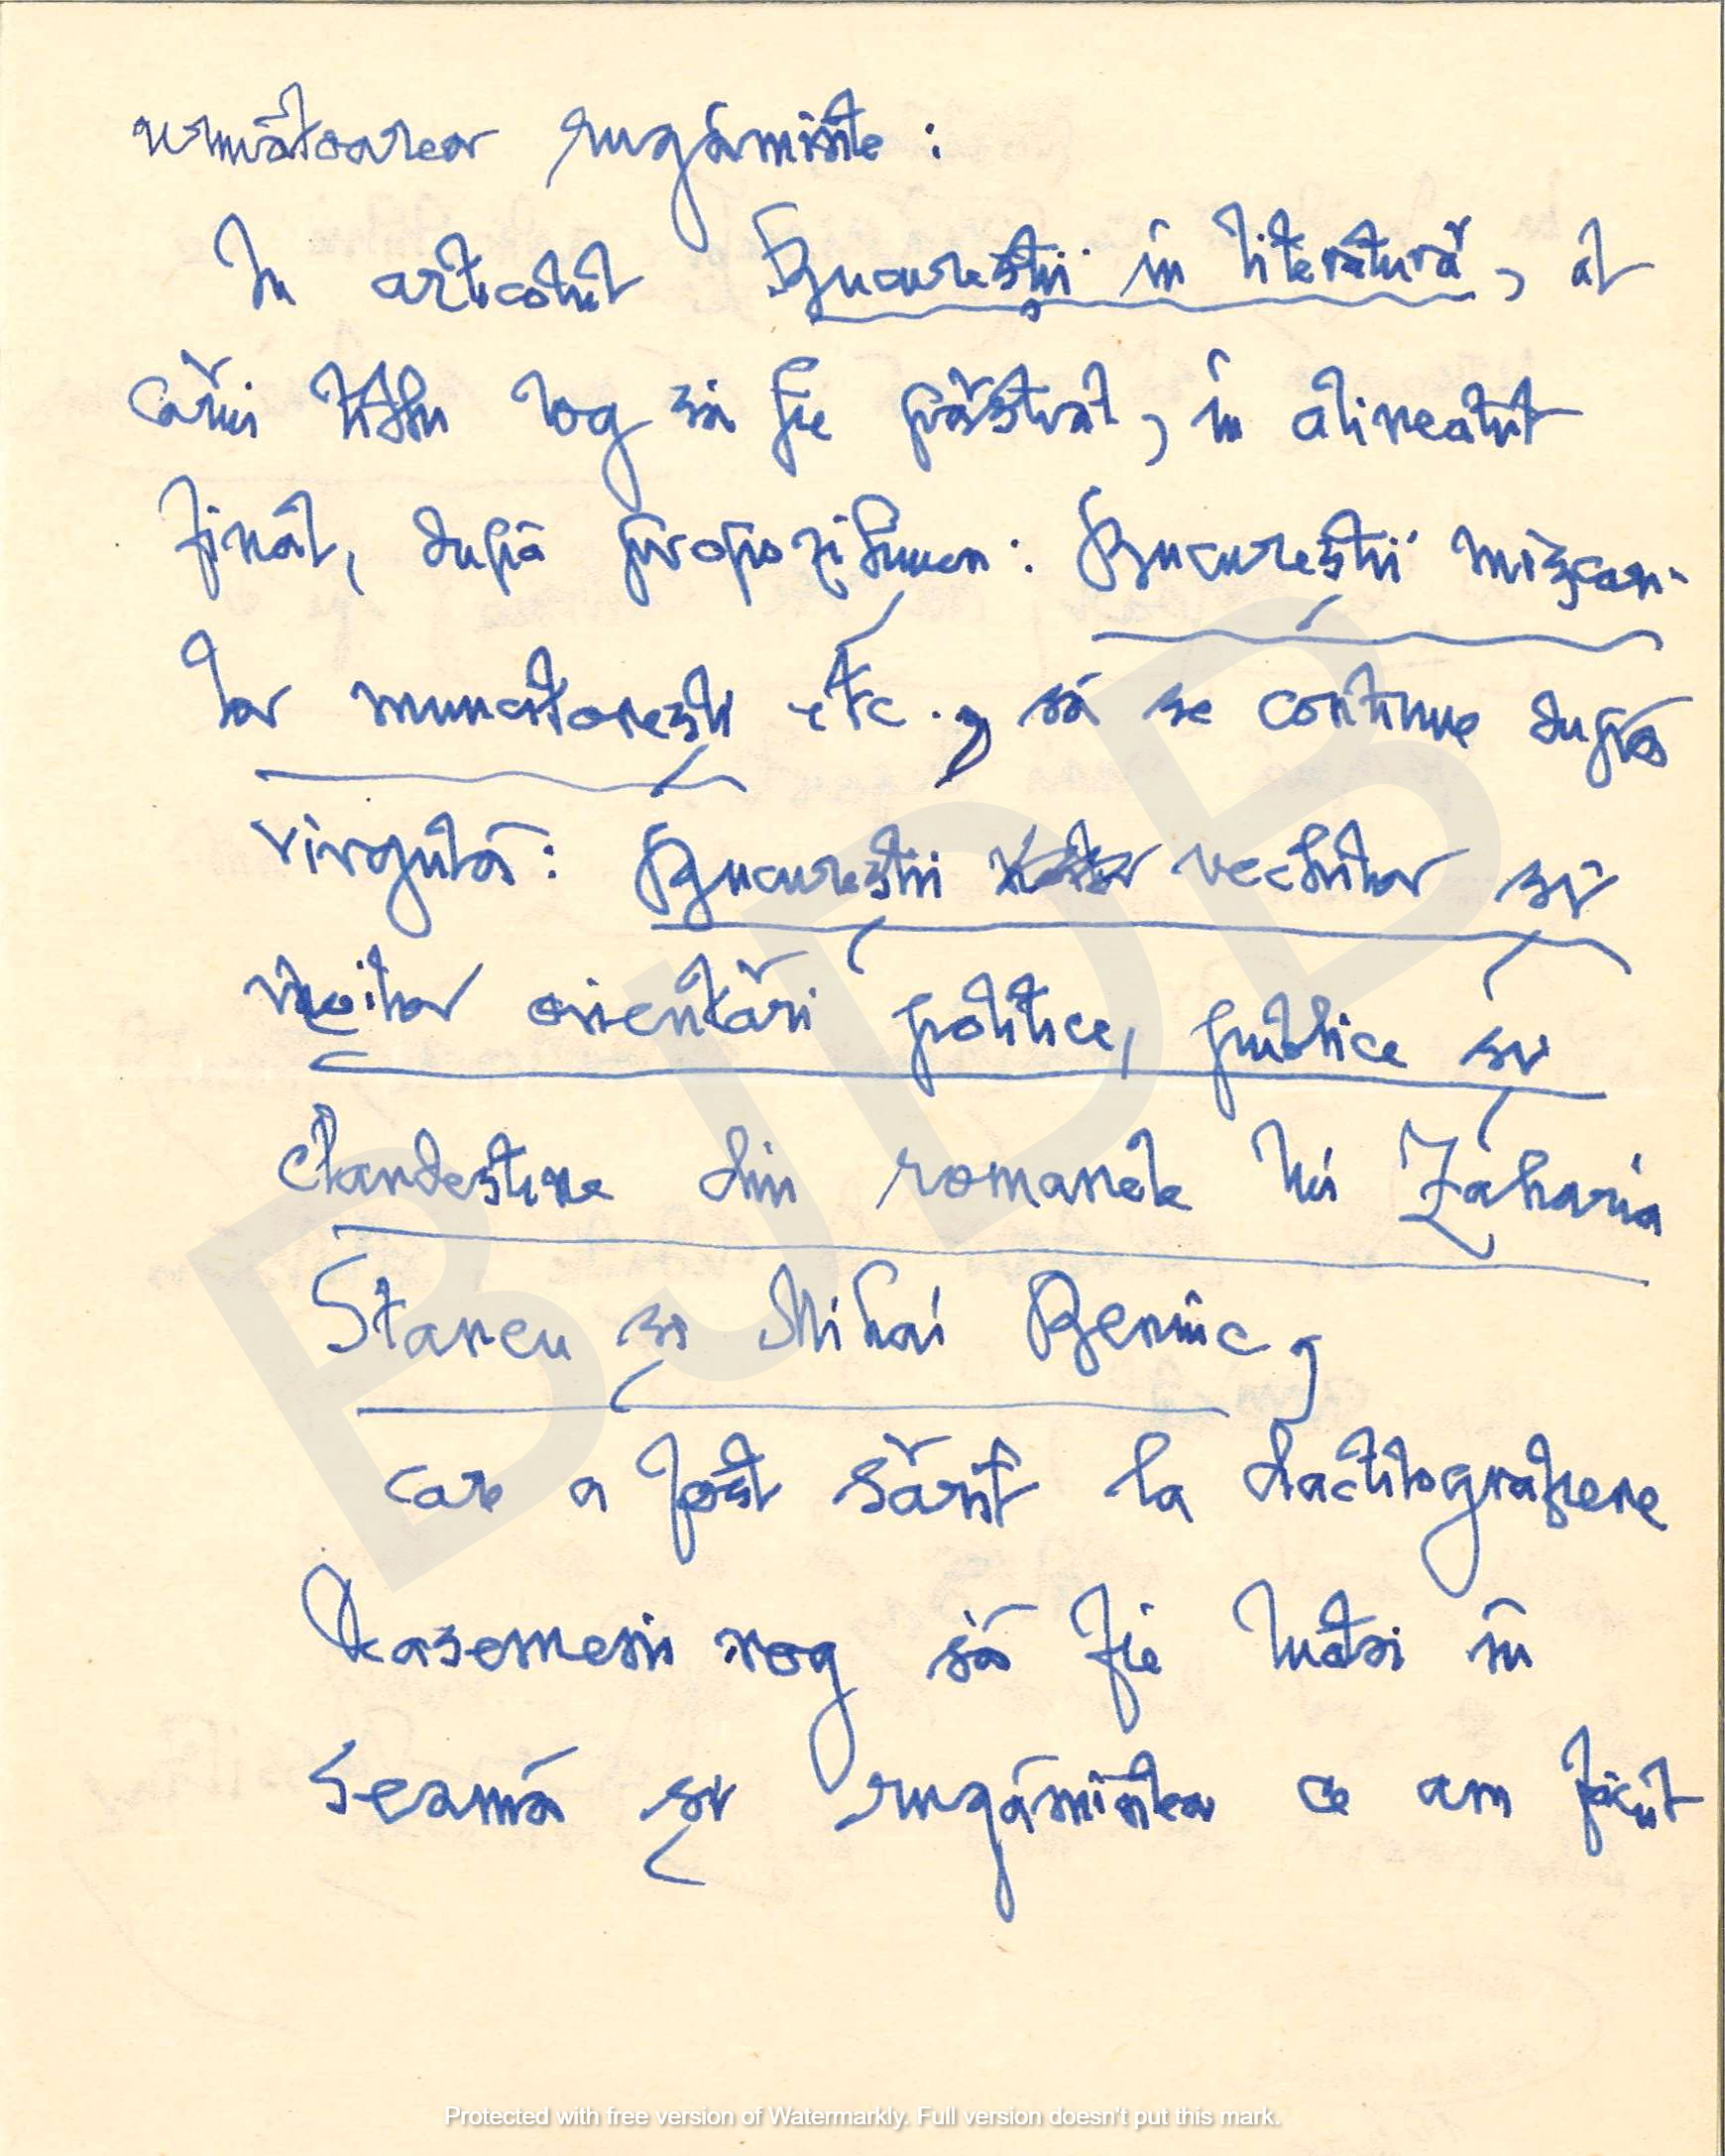 următoarea rugăminte:
In articolul Bucureștii în literatură, al
cărui titlu rog să fie păstrat, în alineatul
final, după propozițiunea: Bucureștii mișcări-
lor muncitorești etc., să se continue după
virgulă: Bucureștii vechilor și
noilor orientări politice, publice și
clandestine din romanele lui Zaharia
Stancu și Mihai Beniuc,
care a fost sărit la dactilografiere
Deasemeni rog să fie luată în
seamă și rugămintea ce am făcut
BJDB
Protected with free version of Watermarkly. Full version doesn't put this mark.